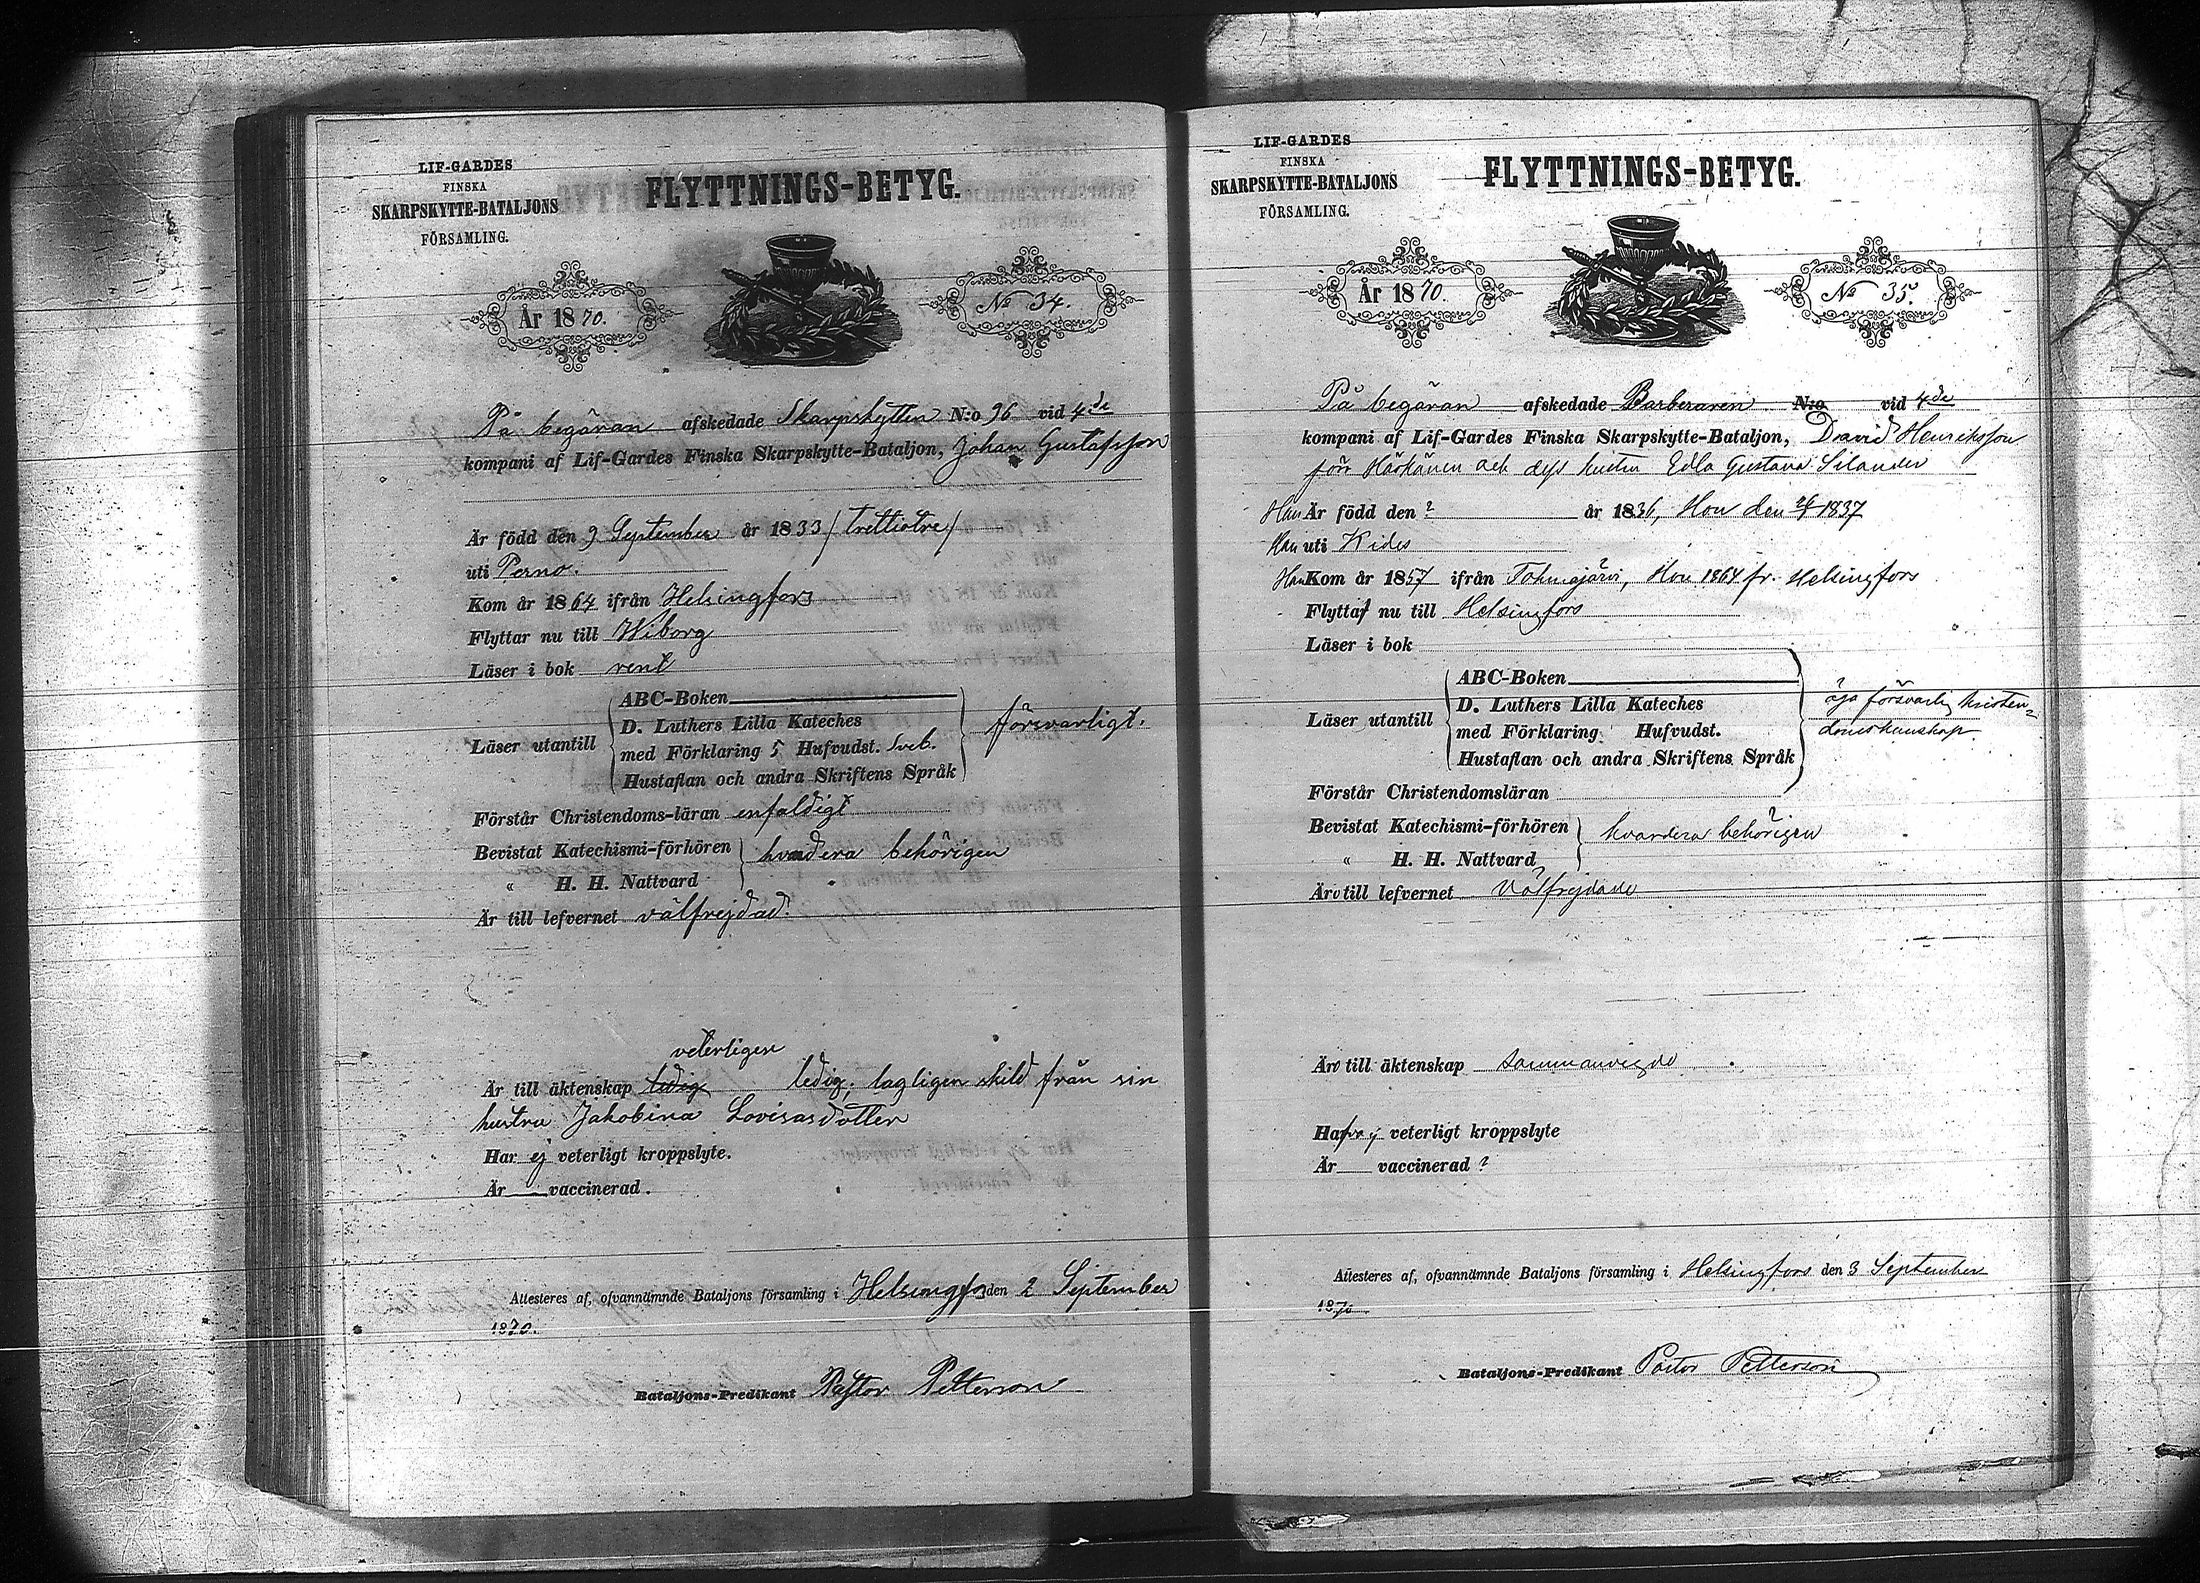 LIF-GARDES
FINSKA
SKARPSKYTTE-BATALJONS
FÖRSAMLING.
FLYTTNINGS-BETYG.
År 1870.
No 34.
På begäran afskedade Skarpskytten N:o 96 vid 4de
kompani af Lif-Gardes Finska Skarpskytte-Bataljon, Johan Gustafsson
Är född den 9 September år 1833 / trettiotre /
uti Perno.
Kom år 1864 ifrån Helsingfors
Flyttar nu till Wiborg
Läser i bok rent
Läser utantill
ABC-Boken
D. Luthers Lilla Kateches
med Förklaring 5 Hufvudst. Sveb.
Hustaflan och andra Skriftens Språk
försvarligt.
Förstår Christendoms-läran enfaldigt
Bevistat Katechismi-förhören
" H. H. Nattvard
hvardera behörigen
Är till lefvernet välfrejdad.
veterligen
Är till äktenskap ledig ledig; lagligen skild från sin
hustru Jakobina Lovisasdotter
Har ej veterligt kroppslyte.
Är vaccinerad.
Attesteres af, ofvannämnde Bataljons församling i Helsingfors den 2 September
1870.
Bataljons-Predikant Pastor Petterson
LIF-GARDES
FINSKA
SKARPSKYTTE-BATALJONS
FÖRSAMLING.
FLYTTNINGS-BETYG.
År 1870.
No 35.
På begäran afskedade Barberaren N:o vid 4de
kompani af Lif-Gardes Finska Skarpskytte-Bataljon, David Henriksson
förr Härkänen och dess hustru Edla Gustava Silander
Han Är född den ? år 1836, Hon den 1837
Han uti Kides
Han Kom år 1857 ifrån Tohmajärvi, Hon 1864 fr. Helsingfors
Flytta nu till Helsingfors
Läser i bok
Läser utantill
ABC-Boken
D. Luthers Lilla Kateches
med Förklaring Hufvudst.
Hustaflan och andra Skriftens Språk
äga försvarlig kristen-
domskunskap
Förstår Christendomsläran
Bevistat Katechismi-förhören
" H. H. Nattvard
hvardera behörigen
Äro till lefvernet Välfrejdade
Äro till äktenskap sammanvigde
Hafva ej veterligt kroppslyte
Är vaccinerad ?
Attesteres af, ofvannämnde Bataljons församling i Helsingfors den 3 September
1870
Bataljons-Predikant Pastor Petterson